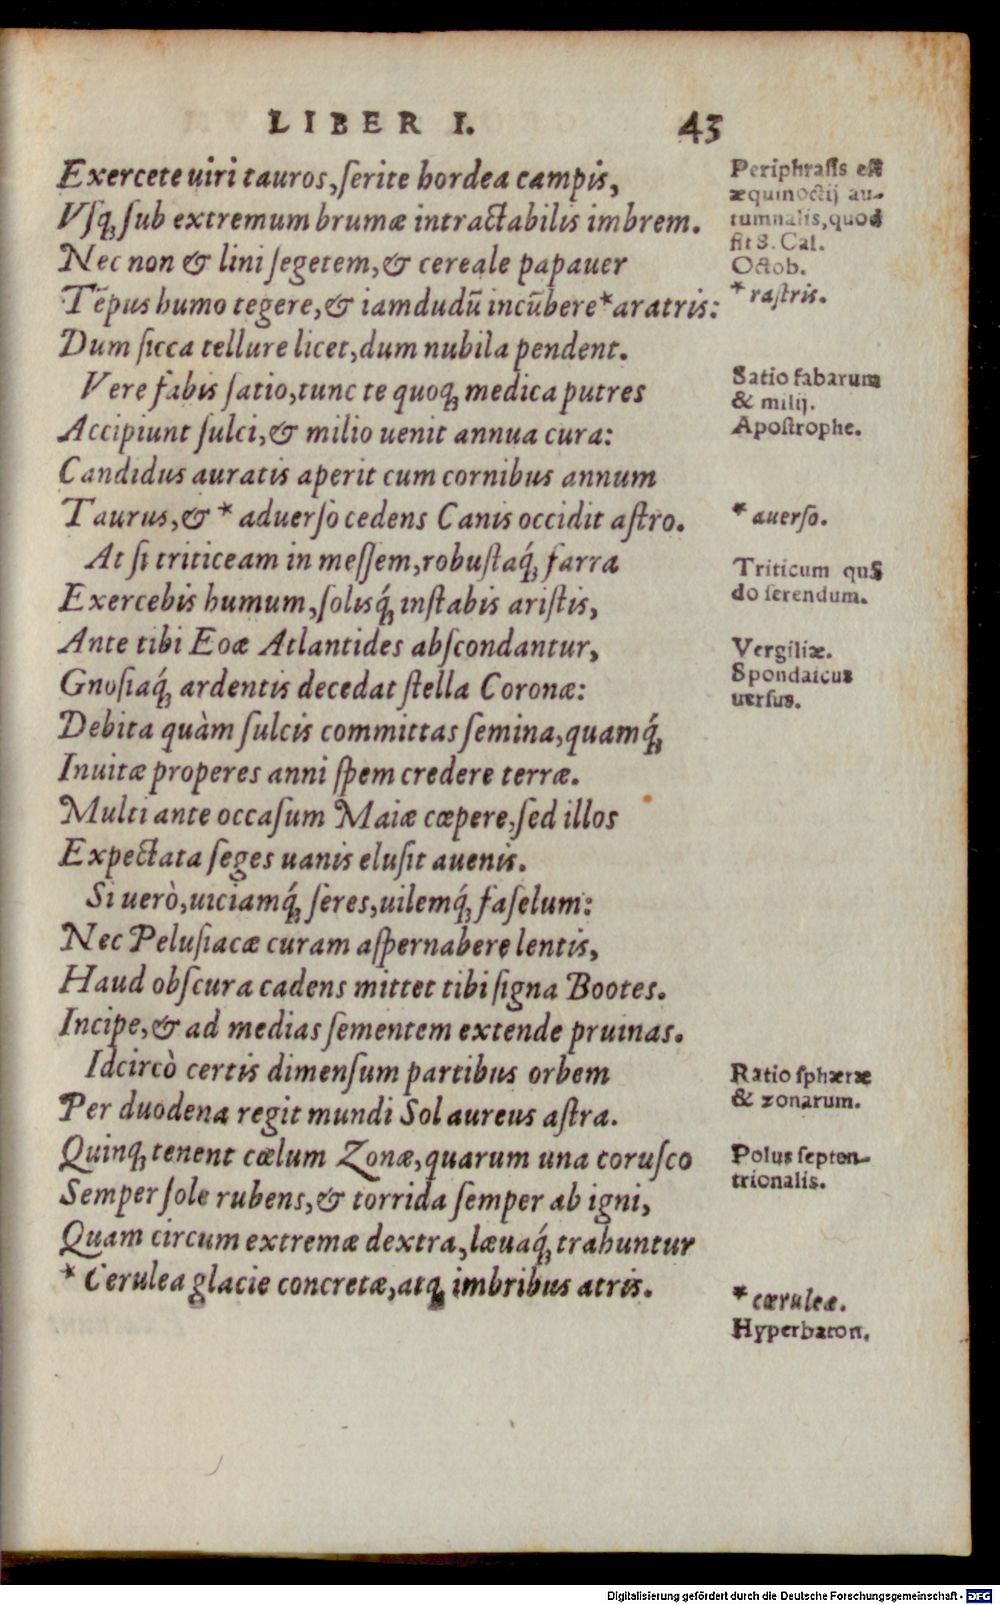 LIBER I. 43
Exercete uiri tauros, ſerite hordea campis,
Vſq; ſub extremum brumæ intractabilis imbrem.
Nec non & lini ſegetem, & cereale papauer
Tēpus humo tegere, & iamdudū incūbere *aratris:
Dum ſicca tellure licet, dum nubila pendent.
Vere fabis ſatio, tunc te quoq; medica putres
Accipiunt ſulci, & milio uenit annua cura:
Candidus auratis aperit cum cornibus annum
Taurus, & * aduerſo cedens Canis occidit aſtro.
At ſi triticeam in meſſem, robuſtaq́; farra
Exercebis humum, ſolisq́; inſtabis ariſtis,
Ante tibi Eoæ Atlantides abſcondantur,
Gnoſiaq́; ardentis decedat ſtella Coronæ:
Debita quàm ſulcis committas ſemina, quamq́;
Inuitæ properes anni ſpem credere terræ.
Multi ante occaſum Maiæ cœpere, ſed illos
Expectata ſeges uanis eluſit auenis.
Si uerò, uiciamq́; ſeres, uilemq́; faſelum:
Nec Peluſiacæ curam aſpernabere lentis,
Haud obſcura cadens mittet tibi ſigna Bootes.
Incipe, & ad medias ſementem extende pruinas.
Idcircò certis dimenſum partibus orbem
Per duodena regit mundi Sol aureus aſtra.
Quinq; tenent cœlum Zonæ, quarum una coruſco
Semper ſole rubens, & torrida ſemper ab igni,
Quam circum extremæ dextra, læuaq́; trahuntur
* Cerulea glacie concretæ, atq; imbribus atris.
Periphraſis eſt
æquinoctij au-
tumnalis, quod
fit 8. Cal.
Octob.
* raſtris.
Satio fabarum
& milij.
Apoſtrophe.
* auerſo.
Triticum quā
do ſerendum.
Vergiliæ.
Spondaicus
uerſus.
Ratio ſphæræ
& zonarum.
Polus ſepten-
trionalis.
* cœruleæ.
Hyperbaton.
Digitalisierung gefördert durch die Deutsche Forschungsgemeinschaft - DFG